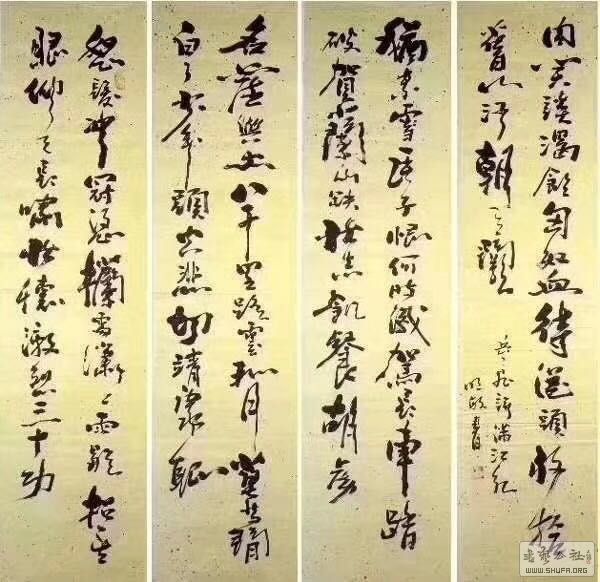 怒髮衝冠憑欄處瀟々雨歇抬望
眼仰天長嘯壯懷激烈三十功
名塵與土八千里路雲和月莫等閒
白了少年頭空悲切靖康恥
猶未雪臣子恨何時滅駕長車踏
破賀蘭山缺壯志飢餐胡虜
肉笑談渴飲匈奴血待從頭收拾
舊山河朝天闕
岳飛詞滿江紅
书艺公社
WWW.SHUFA.ORG